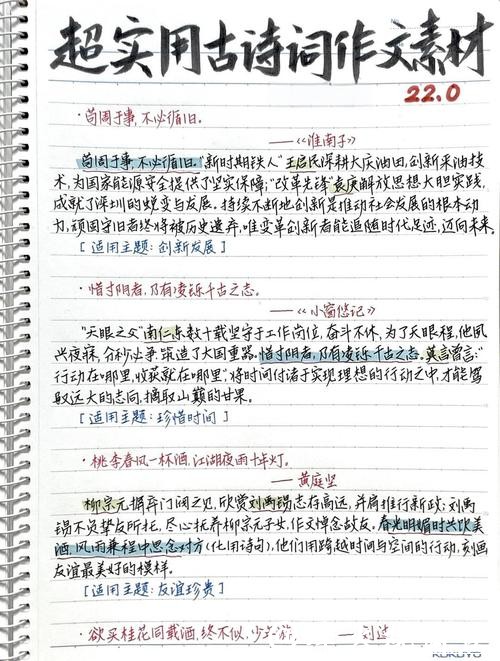 超实用古诗词作文素材
22.0
·苟周于事,不必循旧。
——《淮南子》
苟周于事,不必循旧。"新时期铁人"王启民深耕大庆油田,创新采油技
术,为国家能源安全提供了坚实保障;"改革先锋"袁庚解放思想大胆实践,
成就了深圳的蜕变与发展。持续不断地创新是推动社会发展的根本动
力,顽固守旧者终将被历史遗弃,唯变革创新者能追随时代足迹,迈向未来。
[适用主题:创新发展]
·惜寸阴者,乃有凌铄千古之志。
——《小窗幽记》
"天眼之父"南仁东数十载坚守于工作岗位,奋斗不休,为了天眼工程,他夙
兴夜寐,分秒必争,筑造了大国重器。惜寸阴者,乃有凌铄千古之志。莫言曾言:"
行动在哪里,收获就在哪里",将时间付诸于实现理想的行动之中,才能驾
驭远大的志向,摘取山巅的甘果。
[适用主题:珍惜时间]
·桃李春风一杯酒,江湖夜雨十年灯。
——黄庭坚
柳宗元摒弃门阀之见,欣赏刘禹锡志存高远,并肩推行新政;刘禹
锡不负挚友所托,尽心抚养柳宗元子女,作文悼念故友。春光明媚时共饮美
酒,风雨兼程中思念对方(化用诗句),他们用跨越时间与空间的行动,刻画
友谊最美好的模样。
[适用主题:友谊珍贵]
·欲买桂花同载酒,终不似,少年游。 ——刘过
KOKUYO